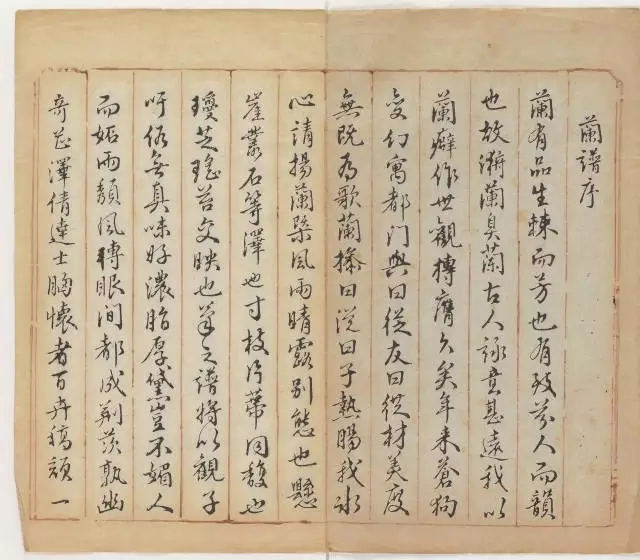 蘭譜序
蘭有品生棘而芳也有致芬人而韻
也故漸蘭臭蘭古人詠意甚遠我以
蘭癖作世觀摶膺久矣年來蒼狗
變幻寓都門與曰從友曰從材美度
無既為歌蘭操曰從曰子熱腸我冰
心請揚蘭槩風雨晴露別態也懸
崖叢石等澤也寸枝片蒂同馥也
瓊芝瑤苔交映也筆之譜將以觀子
吁俗無真味好濃脂厚黛豈不媚人
而妬雨顏風轉眼間都成荊茨孰幽
奇芷澤倩達士胸懷者百卉稿顏一